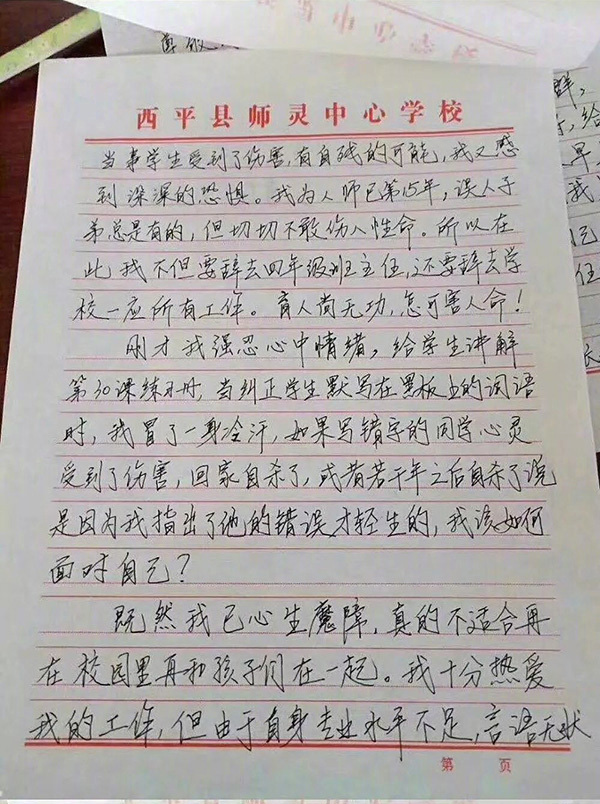 西平县师灵中心学校
当事学生受到了伤害,有自残的可能,我又感
到深深的恐惧。我为人师已第15年,误人子
弟总是有的,但切切不敢伤人性命。所以在
此,我不但要辞去四年级班主任,还要辞去学
校一应所有工作。育人尚无功,怎可害人命!
刚才我强忍心中情绪,给学生讲解
第30课练习册,当纠正学生默写在黑板上的词语
时,我冒了一身冷汗,如果写错字的同学心灵
受到了伤害,回家自杀了,或者若干年之后自杀了说
是因为我指出了他的错误才轻生的,我该如何
面对自己?
既然我已心生魔障,真的不适合再
在校园里再和孩子们在一起。我十分热爱
我的工作,但由于自身专业水平不足,言语无状
第 页